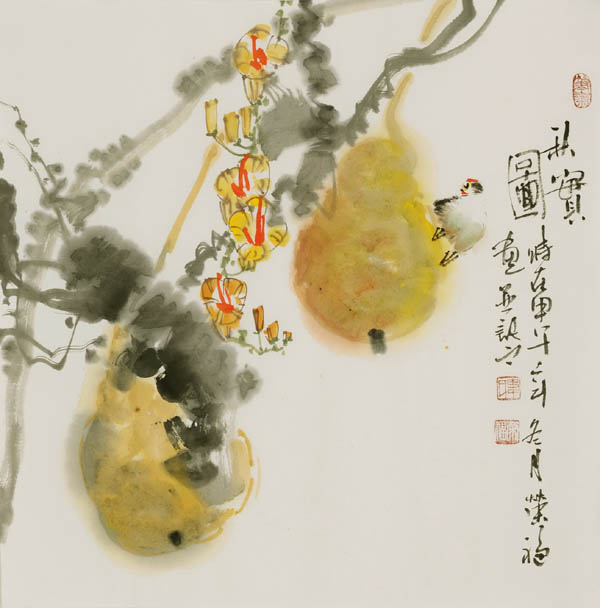 秋實圖
時在甲午年
冬月榮福
畫并記之